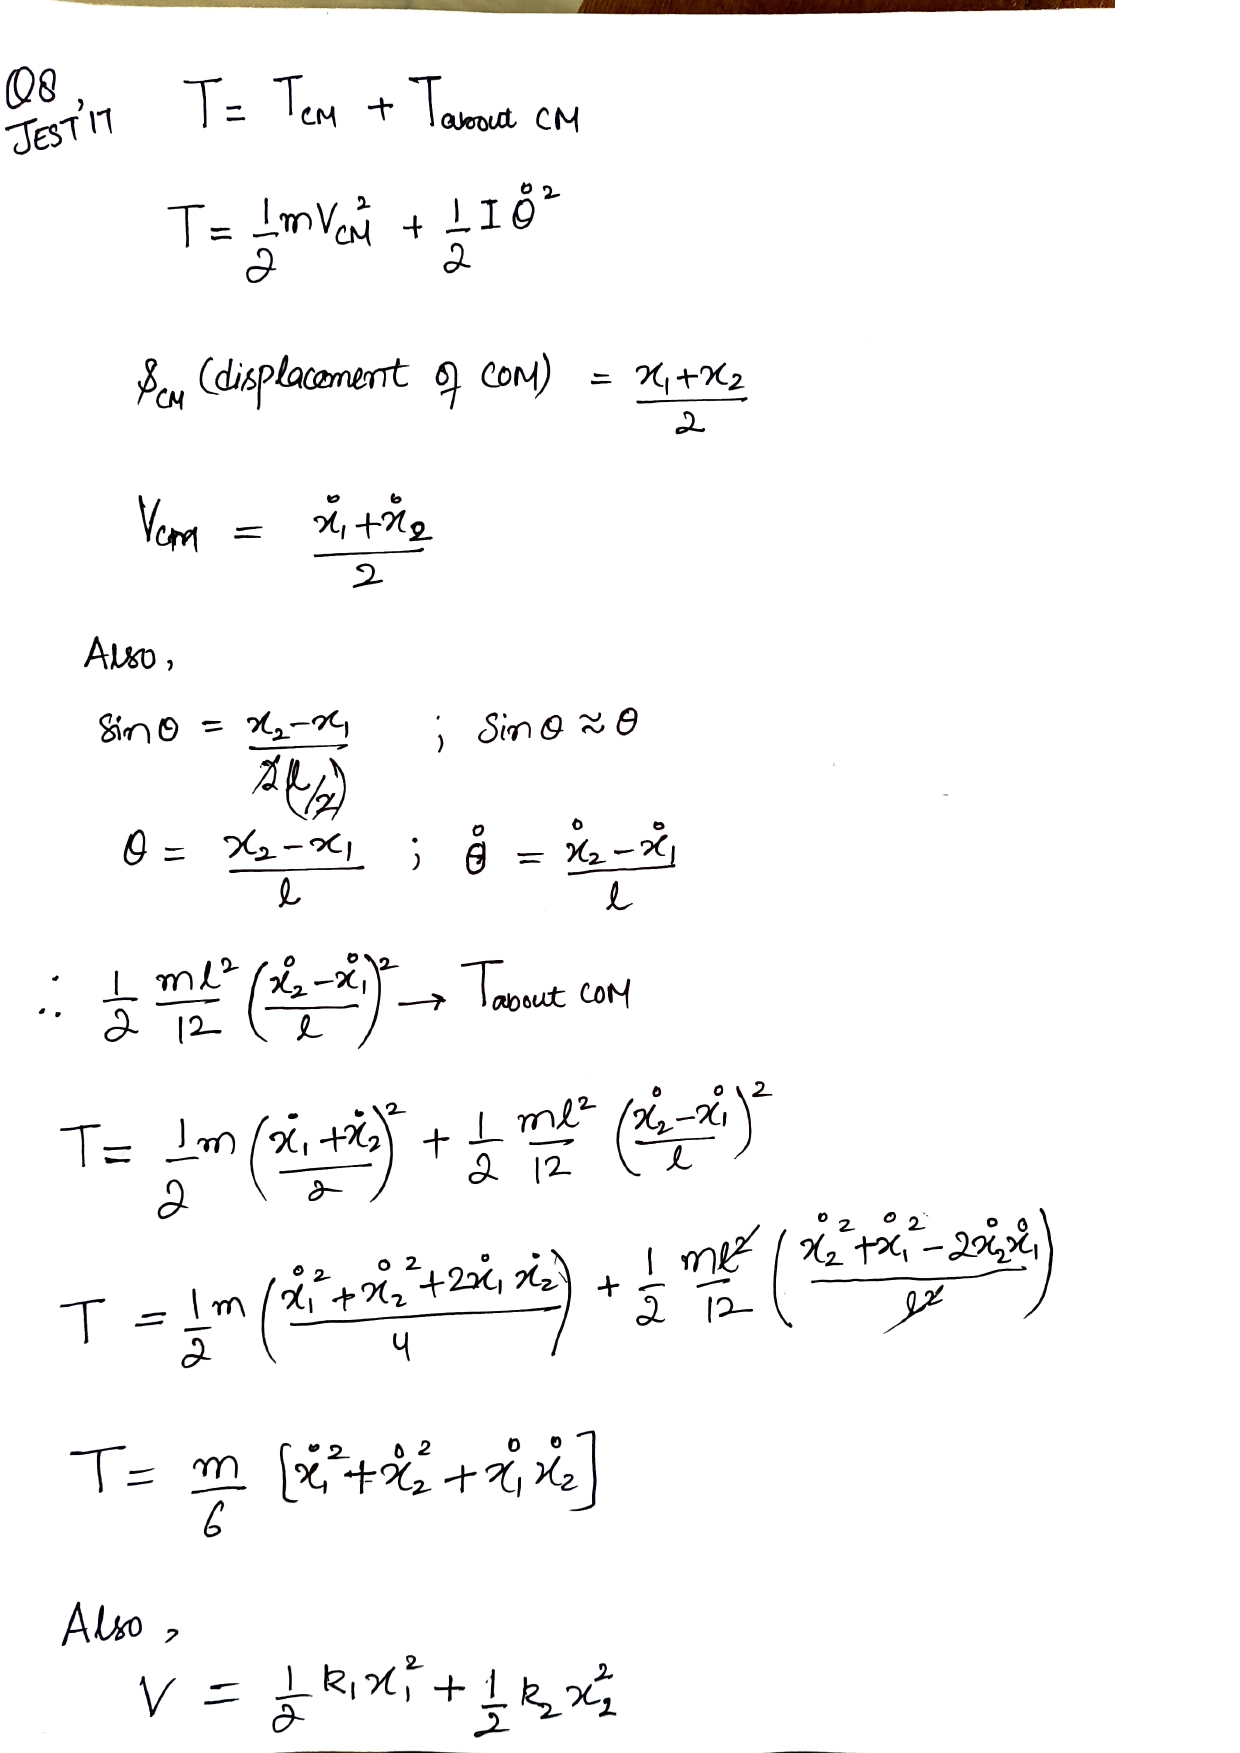 Q8, JEST'17
T = T_CM + T_about CM
T = 1/2 m V_CM² + 1/2 I θ̊²
S_CM (displacement of COM) = (x₁ + x₂)/2
V_CM = (x̊₁ + x̊₂)/2
Also,
Sin θ = (x₂ - x₁)/(2(l/2)) ; Sin θ ≈ θ
θ = (x₂ - x₁)/l ; θ̊ = (x̊₂ - x̊₁)/l
∴ 1/2 ml²/12 ((x̊₂ - x̊₁)/l)² → T_about COM
T = 1/2 m ((ẋ₁ + ẋ₂)/2)² + 1/2 ml²/12 ((x̊₂ - x̊₁)/l)²
T = 1/2 m ((x̊₁² + x̊₂² + 2x̊₁ẋ₂)/4) + 1/2 ml²/12 ((x̊₂² + x̊₁² - 2x̊₂x̊₁)/l²)
T = m/6 [x̊₁² + x̊₂² + x̊₁x̊₂]
Also,
V = 1/2 k₁x₁² + 1/2 k₂x₂²